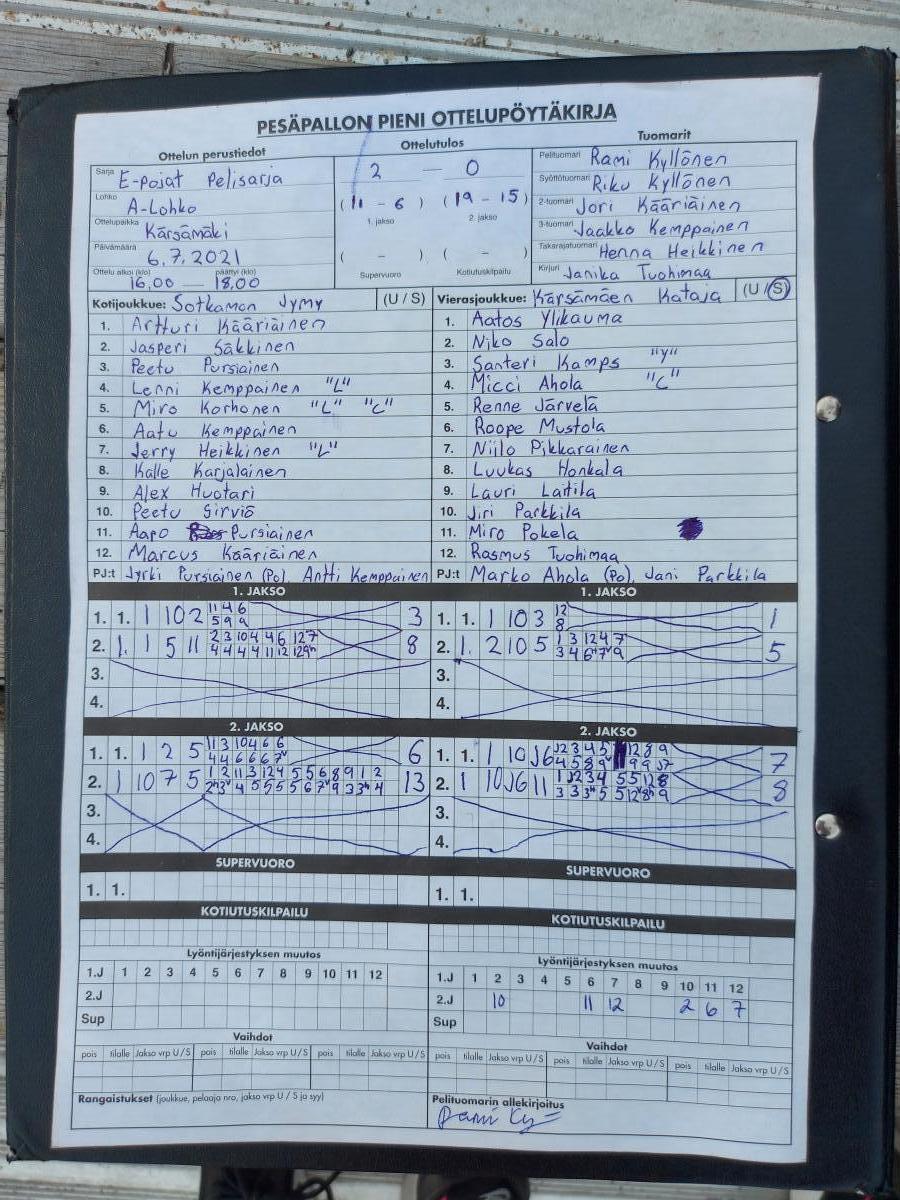 PESÄPALLON PIENI OTTELUPÖYTÄKIRJA
Ottelun perustiedot
Sarja E-pojat Pelisarja
Lohko A-Lohko
Ottelupaikka Kärsämäki
Päivämäärä 6.7.2021
Ottelu alkoi (klo) päättyi (klo)
16.00 — 18.00
Ottelutulos
2 — 0
(11 - 6) (19 - 15)
1. jakso 2. jakso
( - ) ( - )
Supervuoro Kotiutuskilpailu
Tuomarit
Pelituomari Rami Kyllönen
Syöttötuomari Riku Kyllönen
2-tuomari Jori Kääriäinen
3-tuomari Jaakko Kemppainen
Takarajatuomari Henna Heikkinen
Kirjuri Janika Tuohimaa
Kotijoukkue: Sotkamon Jymy (U / S)
1. Artturi Kääriäinen
2. Jasperi Säkkinen
3. Peetu Pursiainen
4. Lenni Kemppainen "L"
5. Miro Korhonen "L" "C"
6. Aatu Kemppainen
7. Jerry Heikkinen "L"
8. Kalle Karjalainen
9. Alex Huotari
10. Peetu Sirviö
11. Aapo Pursiainen
12. Marcus Kääriäinen
PJ:t Jyrki Pursiainen (Po), Antti Kemppainen
Vierasjoukkue: Kärsämäen Kataja (U / S)
1. Aatos Ylikauma
2. Niko Salo
3. Santeri Kamps "Y"
4. Micci Ahola "C"
5. Renne Järvelä
6. Roope Mustola
7. Niilo Pikkarainen
8. Luukas Honkala
9. Lauri Laitila
10. Jiri Parkkila
11. Miro Pokela
12. Rasmus Tuohimaa
PJ:t Marko Ahola (Po), Jani Parkkila
1. JAKSO
1. 1. 1 10 2 11 4 6 3
5 9 9
2. 1. 1 5 11 2 3 10 4 4 6 12 7 8
4 4 4 4 11 12 12
3.
4.
1. JAKSO
1. 1. 1 10 3 12 1
8
2. 1. 2 10 5 1 3 12 4 7 5
3 4 6 7 9
3.
4.
2. JAKSO
1. 1. 1 2 5 11 3 10 4 6 6 6
4 4 6 6 6 7
2. 1 10 7 5 1 2 11 3 12 4 5 5 6 8 9 1 2 13
3.
4.
2. JAKSO
1. 1. 1 10 7
2. 1 10 8
3.
4.
SUPERVUORO
1. 1.
SUPERVUORO
1. 1.
KOTIUTUSKILPAILU
KOTIUTUSKILPAILU
Lyöntijärjestyksen muutos
1.J 1 2 3 4 5 6 7 8 9 10 11 12
2.J
Sup
Lyöntijärjestyksen muutos
1.J 1 2 3 4 5 6 7 8 9 10 11 12
2.J 10 11 12 2 6 7
Sup
Vaihdot
pois tilalle Jakso vrp U / S pois tilalle Jakso vrp U / S pois tilalle Jakso vrp U / S
Vaihdot
pois tilalle Jakso vrp U / S pois tilalle Jakso vrp U / S pois tilalle Jakso vrp U / S
Rangaistukset (joukkue, pelaaja nro, jakso vrp U / S ja syy)
Pelituomarin allekirjoitus